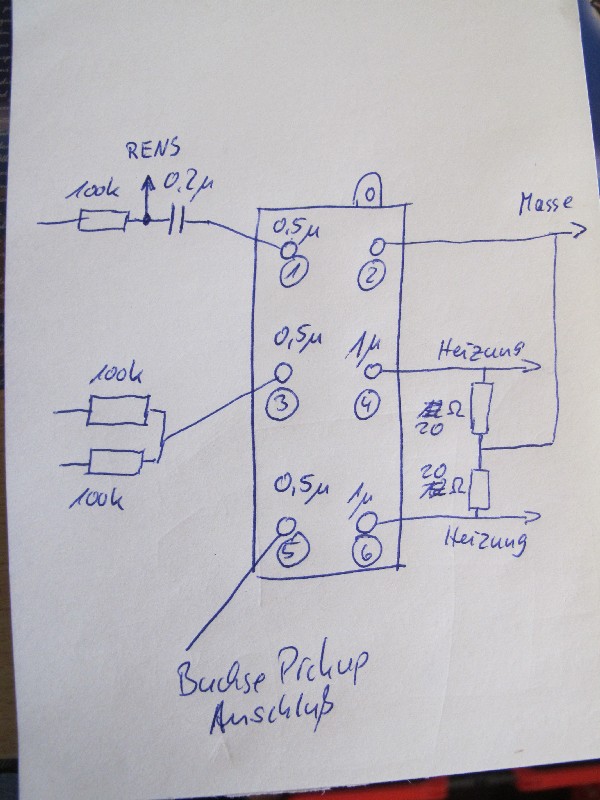 RENS
100k 0,2µ
Masse
0,5µ
1 2
0,5µ 1µ Heizung
100k
3 4 Ω
20
100k
0,5µ 1µ 20
Ω
5 6 Heizung
Buchse Pickup
Anschluß